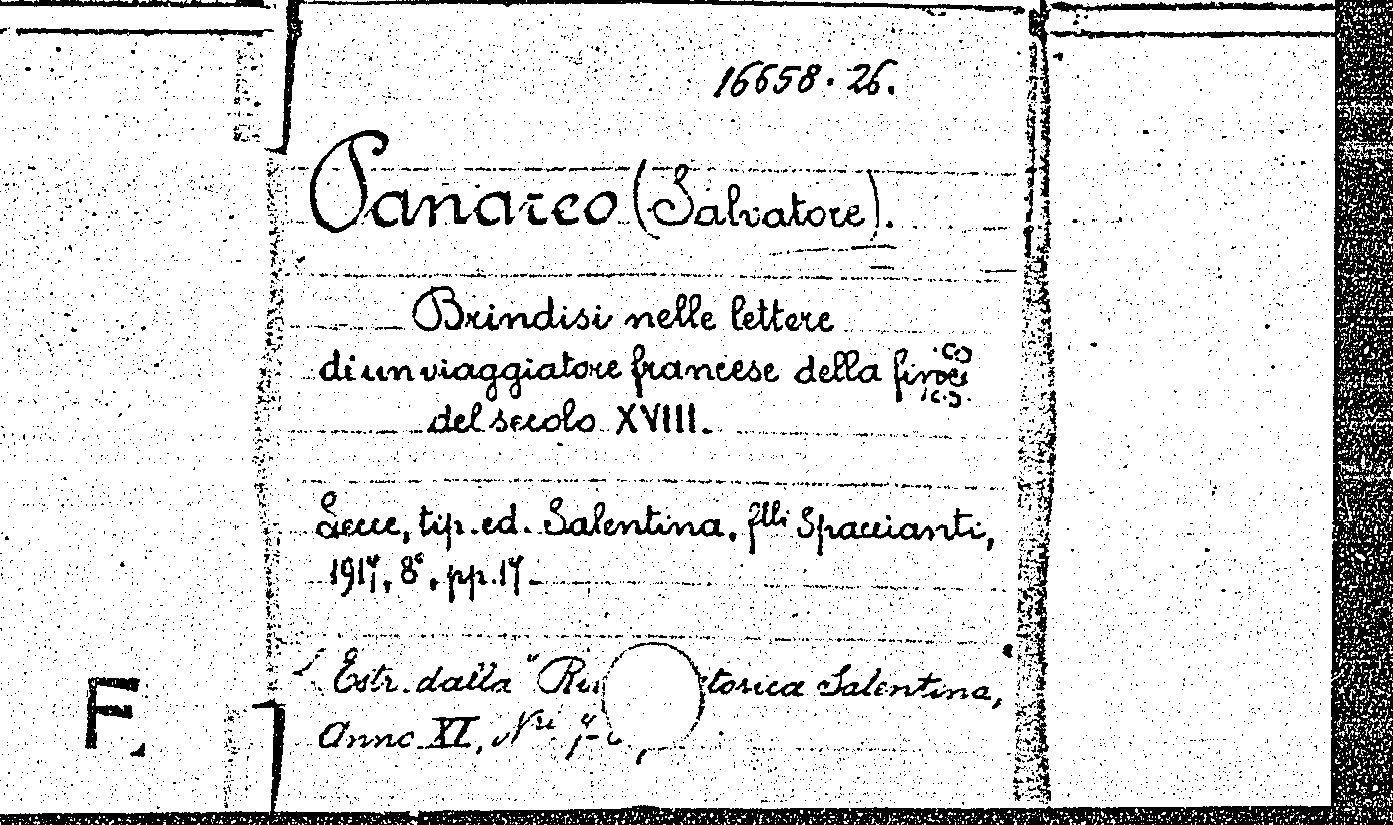 16658.26.
Panareo (Salvatore).
Brindisi nelle lettere
di un viaggiatore francese della fine
del secolo XVIII.
Lecce, tip. ed. Salentina, flli Spaccianti,
1917, 8°, pp. 17.
Estr. dalla "Ri torica Salentina,
Anno XI, Nri
F.